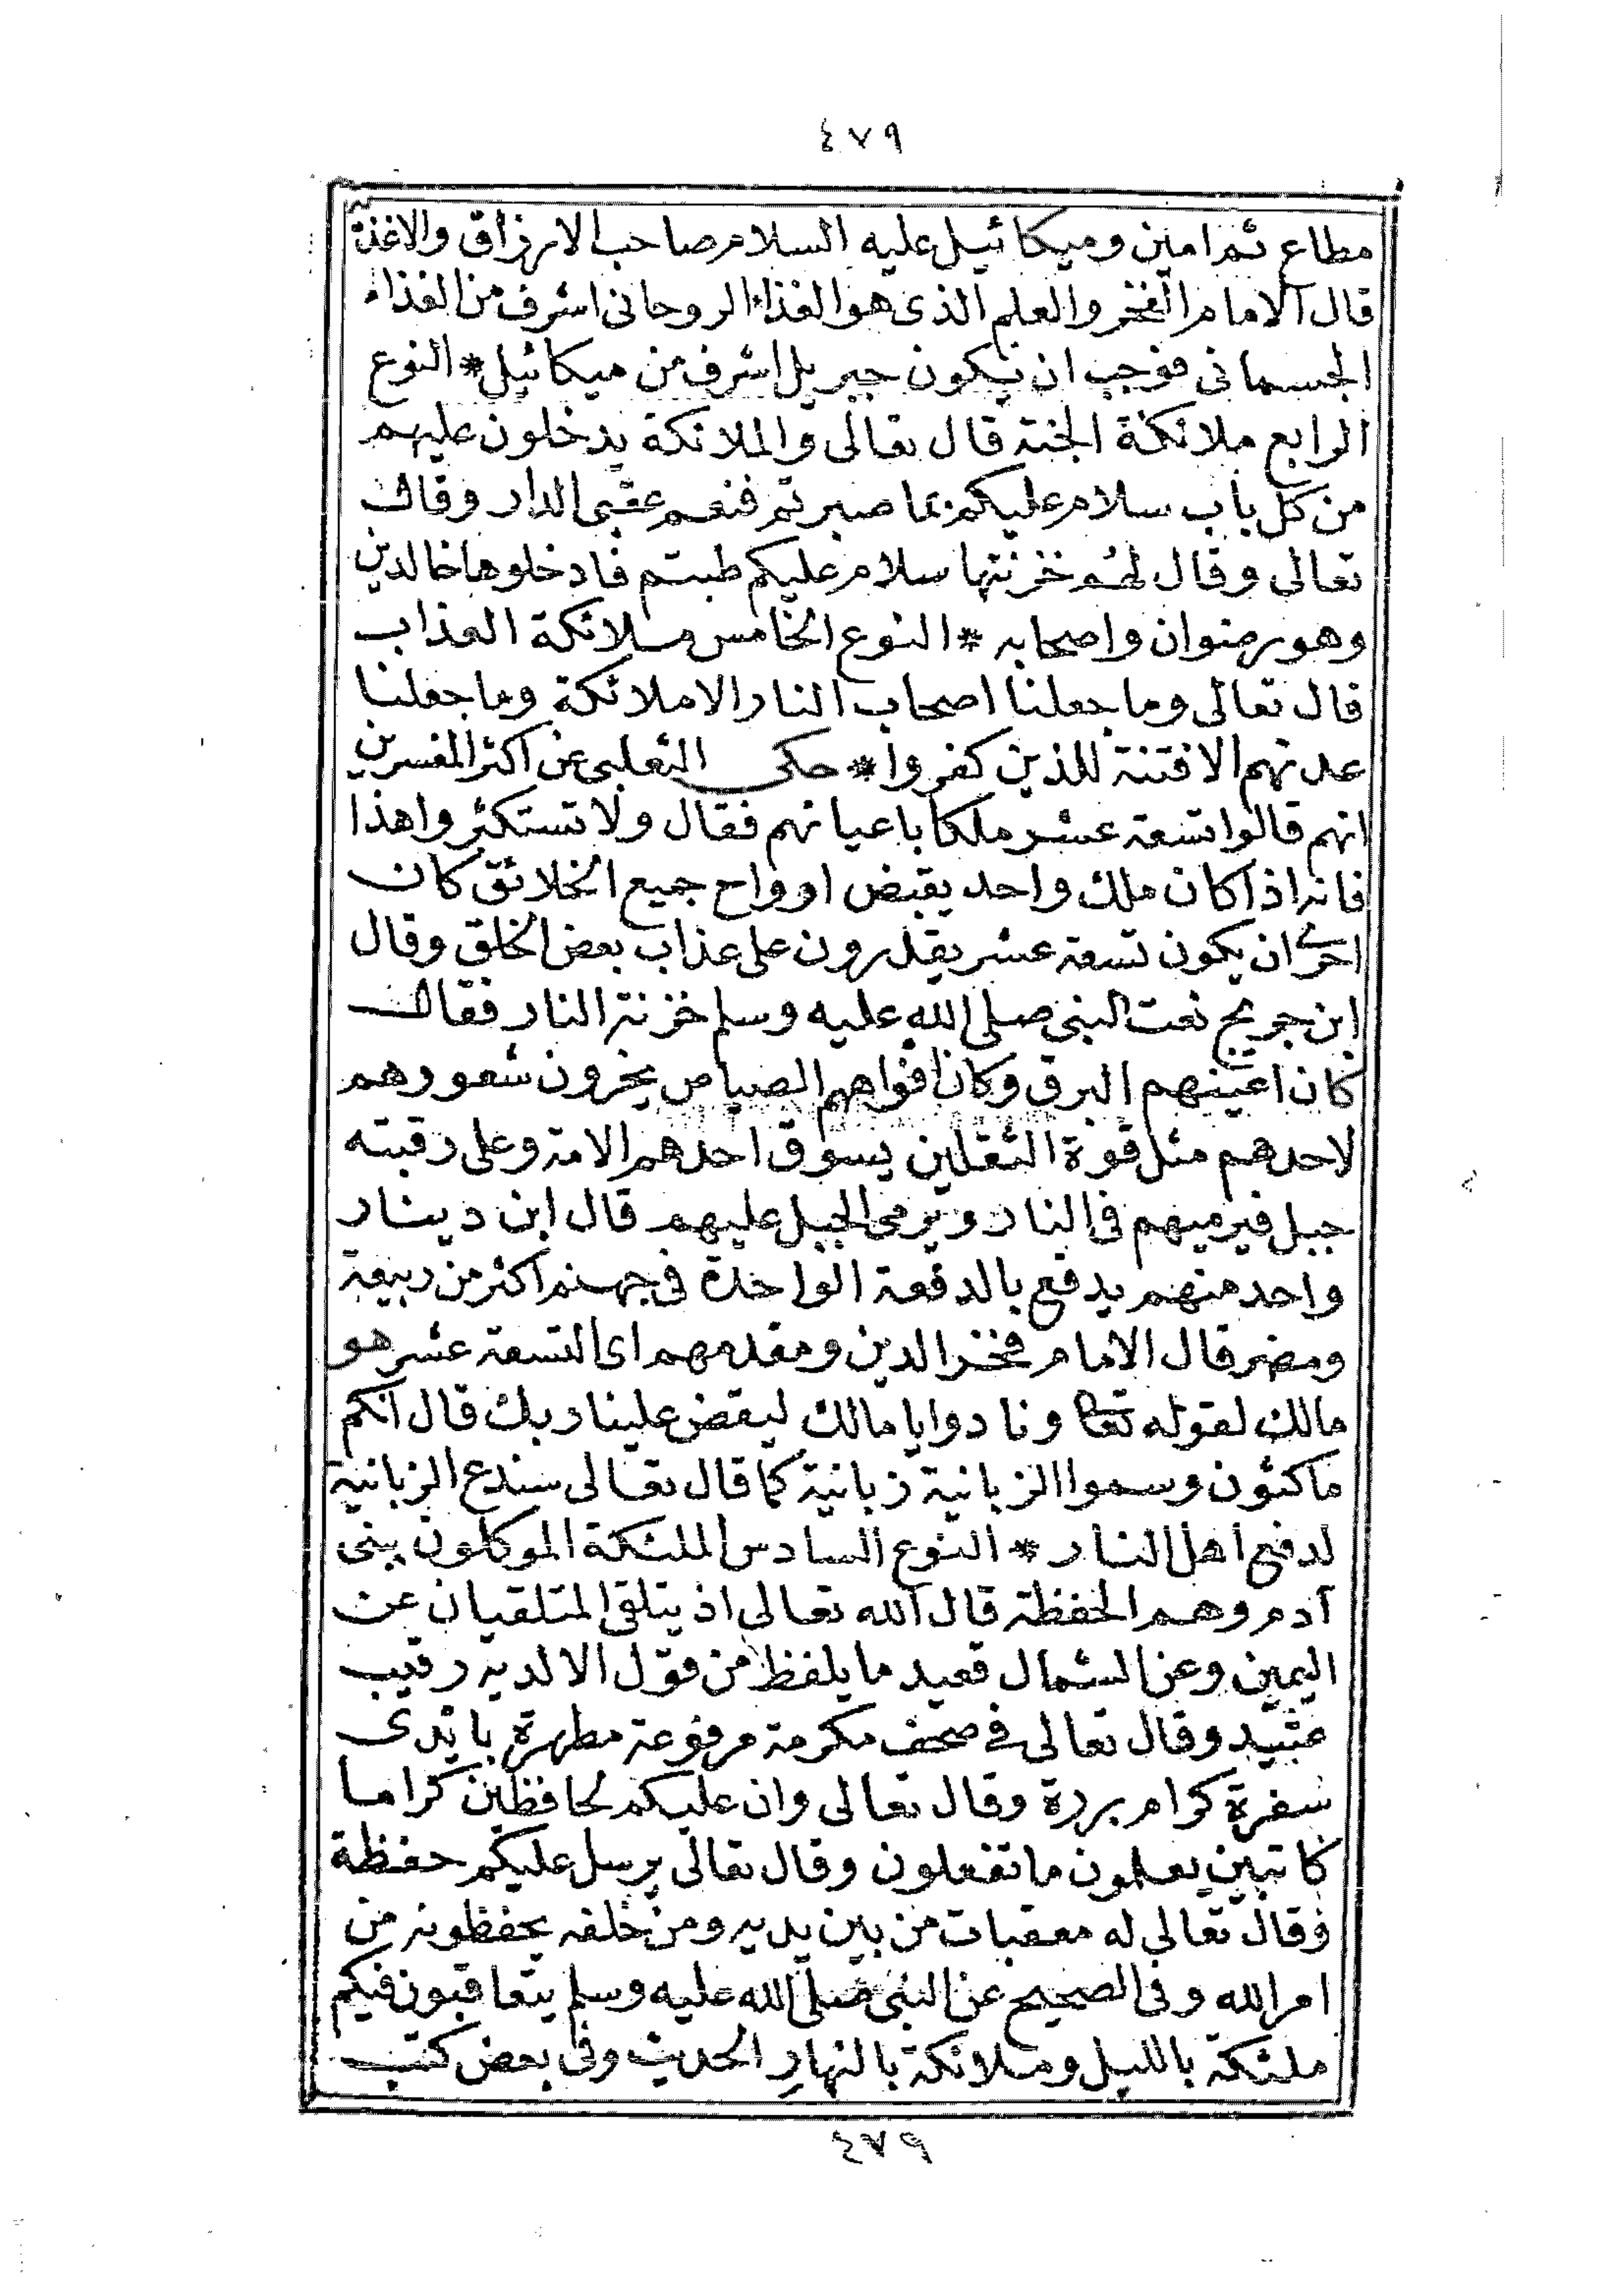 ٤٧٩
مطاع ثم امين وميكائيل عليه السلام صاحب الارزاق والاغذية
قال الامام الفخر والعلم الذى هو الغذاء الروحانى اشرف من الغذاء
الجسمانى فوجب ان يكون جبريل اشرف من ميكائيل * النوع
الرابع ملائكة الجنة قال تعالى والملائكة يدخلون عليهم
من كل باب سلام عليكم بما صبرتم فنعم عقبى الدار وقال
تعالى وقال لهم خزنتها سلام عليكم طبتم فادخلوها خالدين
وهو رضوان واصحابه * النوع الخامس ملائكة العذاب
قال تعالى وما جعلنا اصحاب النار الا ملائكة وما جعلنا
عدتهم الا فتنة للذين كفروا * حكى الثعلبى عن اكثر المفسرين
انهم قالوا تسعة عشر ملكا باعيانهم فقال ولا تستكثروا هذا
فانه اذا كان ملك واحد يقبض ارواح جميع الخلائق كان
احرى ان يكون تسعة عشر يقدرون على عذاب بعض الخلق وقال
ابن جريج نعت النبى صلى الله عليه وسلم خزنة النار فقال
كان اعينهم البرق وكان افواههم الصياص يجرون شعورهم
لاحدهم مثل قوة الثقلين يسوق احدهم الامة وعلى رقبته
جبل فيرميهم فى النار ويرمى الجبل عليهم قال ابن دينار
واحد منهم يدفع بالدفعة الواحدة فى جهنم اكثر من ربيعة
ومضر قال الامام فخر الدين ومقدمهم اى التسعة عشر هو
مالك لقوله تعا ونادوا يا مالك ليقض علينا ربك قال انكم
ماكثون وسموا الزبانية زبانية كما قال تعالى سندع الزبانية
لدفع اهل النار * النوع السادس الملئكة الموكلون ببنى
آدم وهم الحفظة قال الله تعالى اذ يتلقى المتلقيان عن
اليمين وعن الشمال قعيد ما يلفظ من قول الا لديه رقيب
عتيد وقال تعالى فى صحف مكرمة مرفوعة مطهرة بايدى
سفرة كرام بررة وقال تعالى وان عليكم لحافظين كراما
كاتبين يعلمون ما تفعلون وقال تعالى يرسل عليكم حفظة
وقال تعالى له معقبات من بين يديه ومن خلفه يحفظونه من
امر الله وفى الصحيح عن النبى صلى الله عليه وسلم يتعاقبون فيكم
ملئكة بالليل وملائكة بالنهار الحديث وفى بعض كتب
٤٧٩